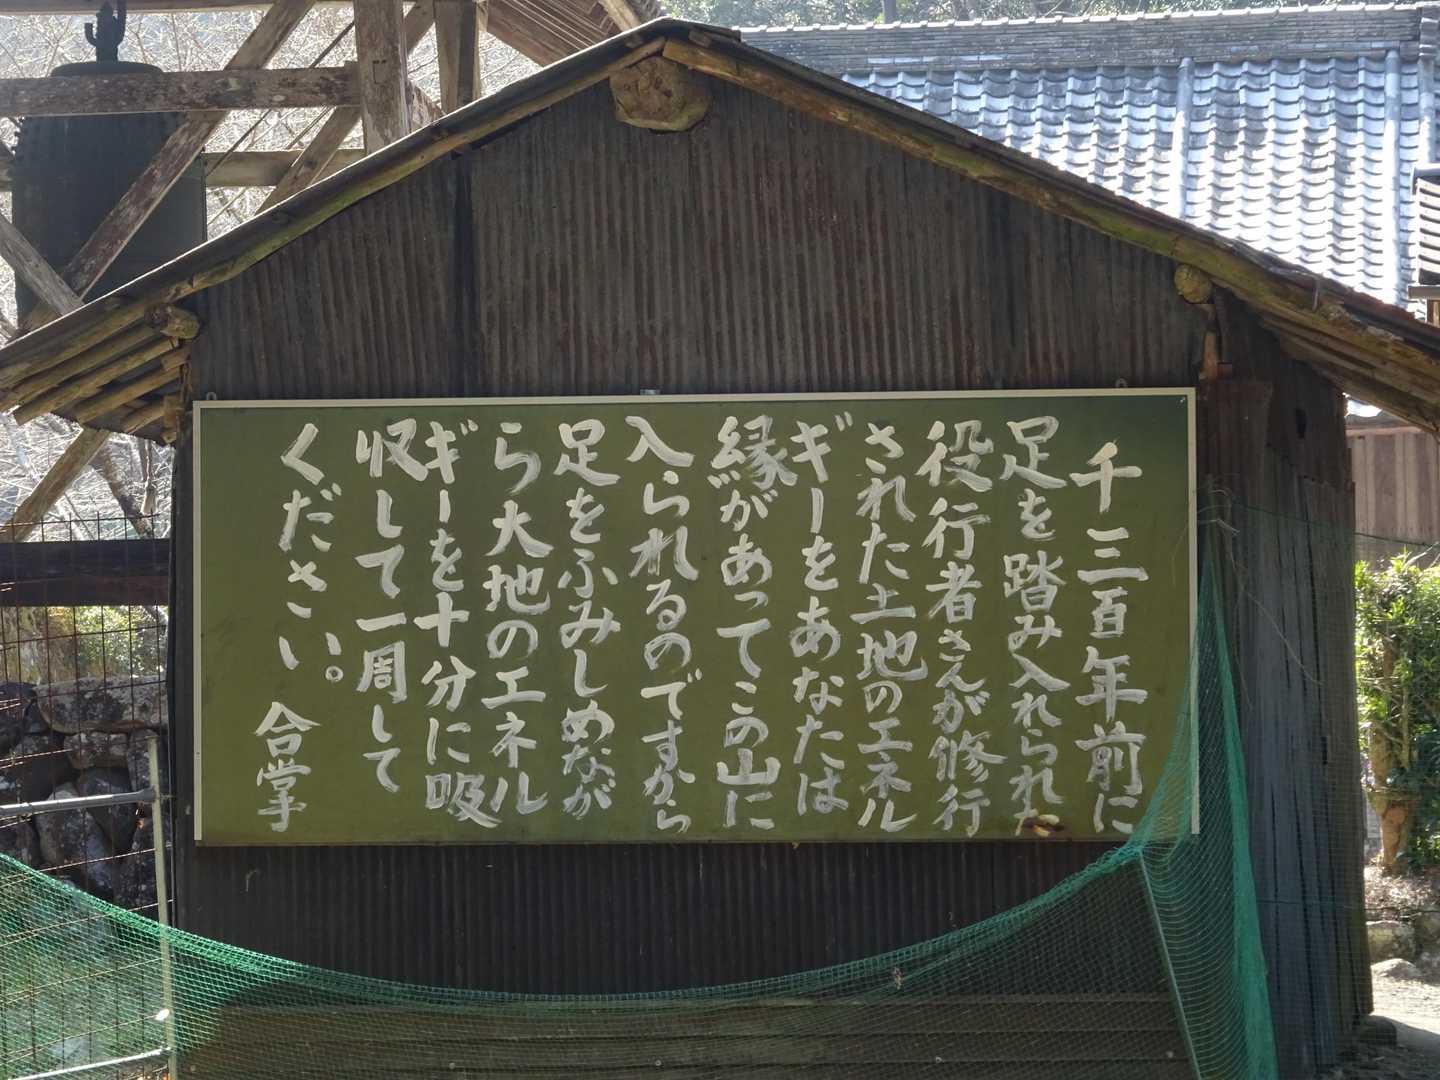 千三百年前に
足を踏み入れられた
役行者さんが修行
された土地のエネル
ギーをあなたは
縁があってこの山に
入られるのですから
足をふみしめなが
ら大地のエネル
ギーを十分に吸
収して一周して
ください。合掌